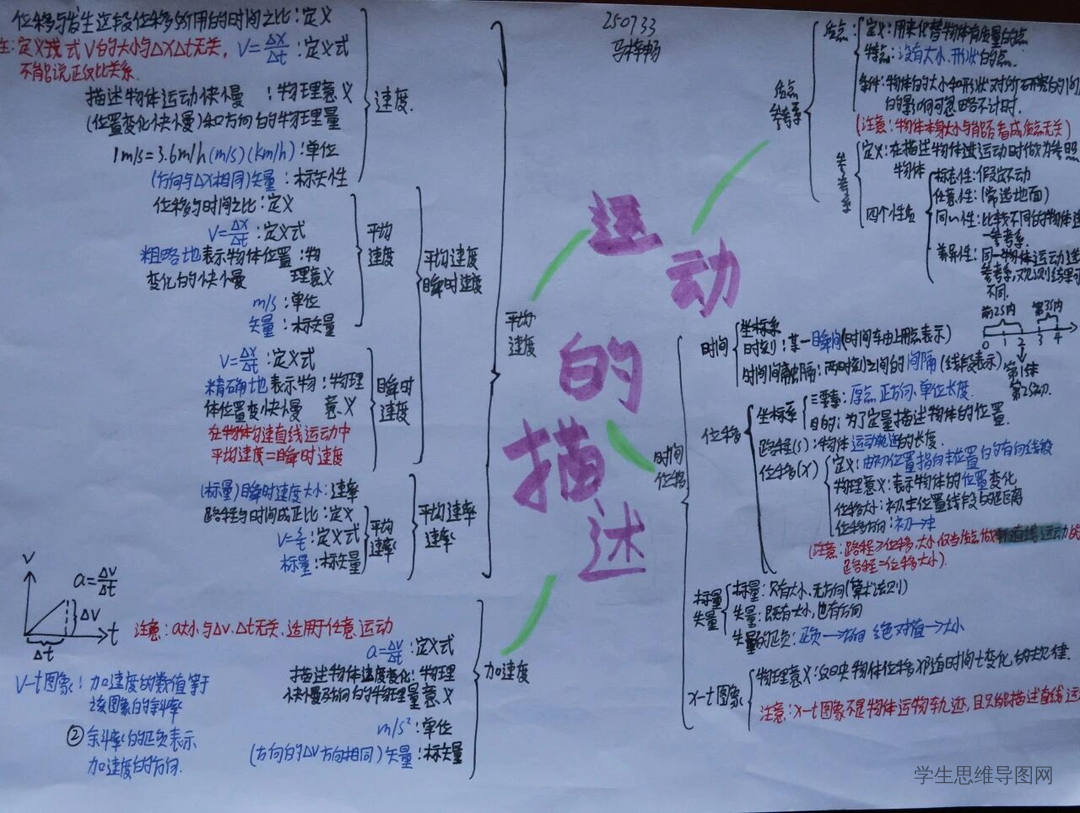 运动的描述
250733
质点
参考系
质点
定义：用来代替物体有质量的点
特点：没有大小、形状的点.
条件：物体的大小和形状对所研究的问
的影响可忽略不计时.
(注意：物体本身大小与能否看成质点无关)
参考系
定义：在描述物体运动时做为参照
物体
四个性质
标志性：假定不动
任意性：(常选地面)
同一性：比较不同的物体选
一参考系.
差异性：同一物体运动选
参考系，观测结果可
不同.
时间
位移
时间
坐标系
时刻：某一瞬间(时间轴上用点表示)
时间间隔：两时刻之间的间隔(线段表示)
前2S内
第3S内
0 1 2 3 4
第1S末
第2S初.
位移
坐标系
三要素：原点、正方向、单位长度.
目的：为了定量描述物体的位置.
路程(s)：物体运动轨迹的长度.
位移(x)
定义：由初位置指向末位置的有向线段
物理意义：表示物体的位置变化
位移大小：初末位置线段的距离
位移方向：初→末
(注意：路程≥位移大小，仅当质点做单向直线运动时
路程=位移大小).
标量
矢量
标量：只有大小，无方向(算术法则)
矢量：既有大小，也有方向
矢量的正负：正负→方向 绝对值→大小
x-t图象
物理意义：反映物体位移随时间t变化的规律.
注意：x-t图象不是物体运动轨迹，且只能描述直线运
平均
速度
速度
位移与发生这段位移所用的时间之比：定义
注：定义式V的大小与ΔxΔt无关， V=Δx/Δt：定义式
不能说正反比关系.
描述物体运动快慢 ：物理意义
(位置变化快慢)和方向的物理量
1m/s=3.6m/h(m/s)(km/h)：单位
(方向与Δx相同)矢量：标矢性
平均速度
瞬时速度
平均
速度
位移的时间之比：定义
V=Δx/Δt：定义式
粗略地表示物体位置：物
变化的快慢 理意义
m/s：单位
矢量：标矢量
瞬时
速度
V=Δx/Δt：定义式
精确地表示物：物理
体位置变快慢 意义
在物体匀速直线运动中
平均速度=瞬时速度
平均速率
速率
(标量)瞬时速度大小：速率
平均
速率
路程与时间成正比：定义
V=s/t：定义式
标量：标矢量
加速度
a=Δv/Δt：定义式
描述物体速度变化：物理
快慢及方向的物理量意义
m/s²：单位
(方向的Δv方向相同)矢量：标矢量
注意：a大小与Δv、Δt无关，适用于任意运动
V
a=Δv/Δt
Δv
t
Δt
V-t图象：加速度的数值等于
该图象的斜率
②斜率的正负表示
加速度的方向.
学生思维导图网